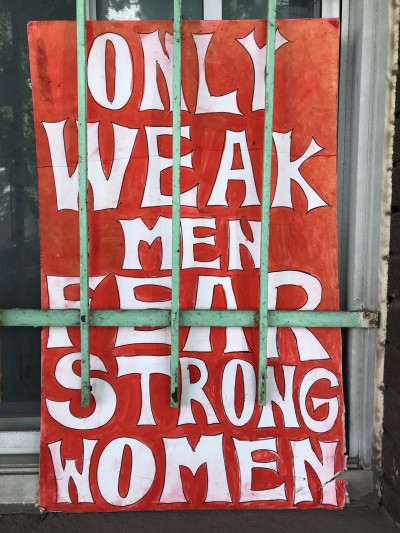 ONLY
WEAK
MEN
FEAR
STRONG
WOMEN